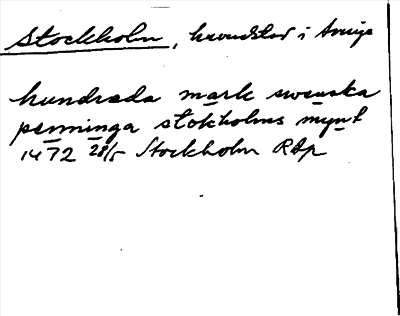 Stockholm, huvudstad i Sverige
hundrada mark swenska
penninga stokholms mynt
1472 28/5 Stockholm RAp